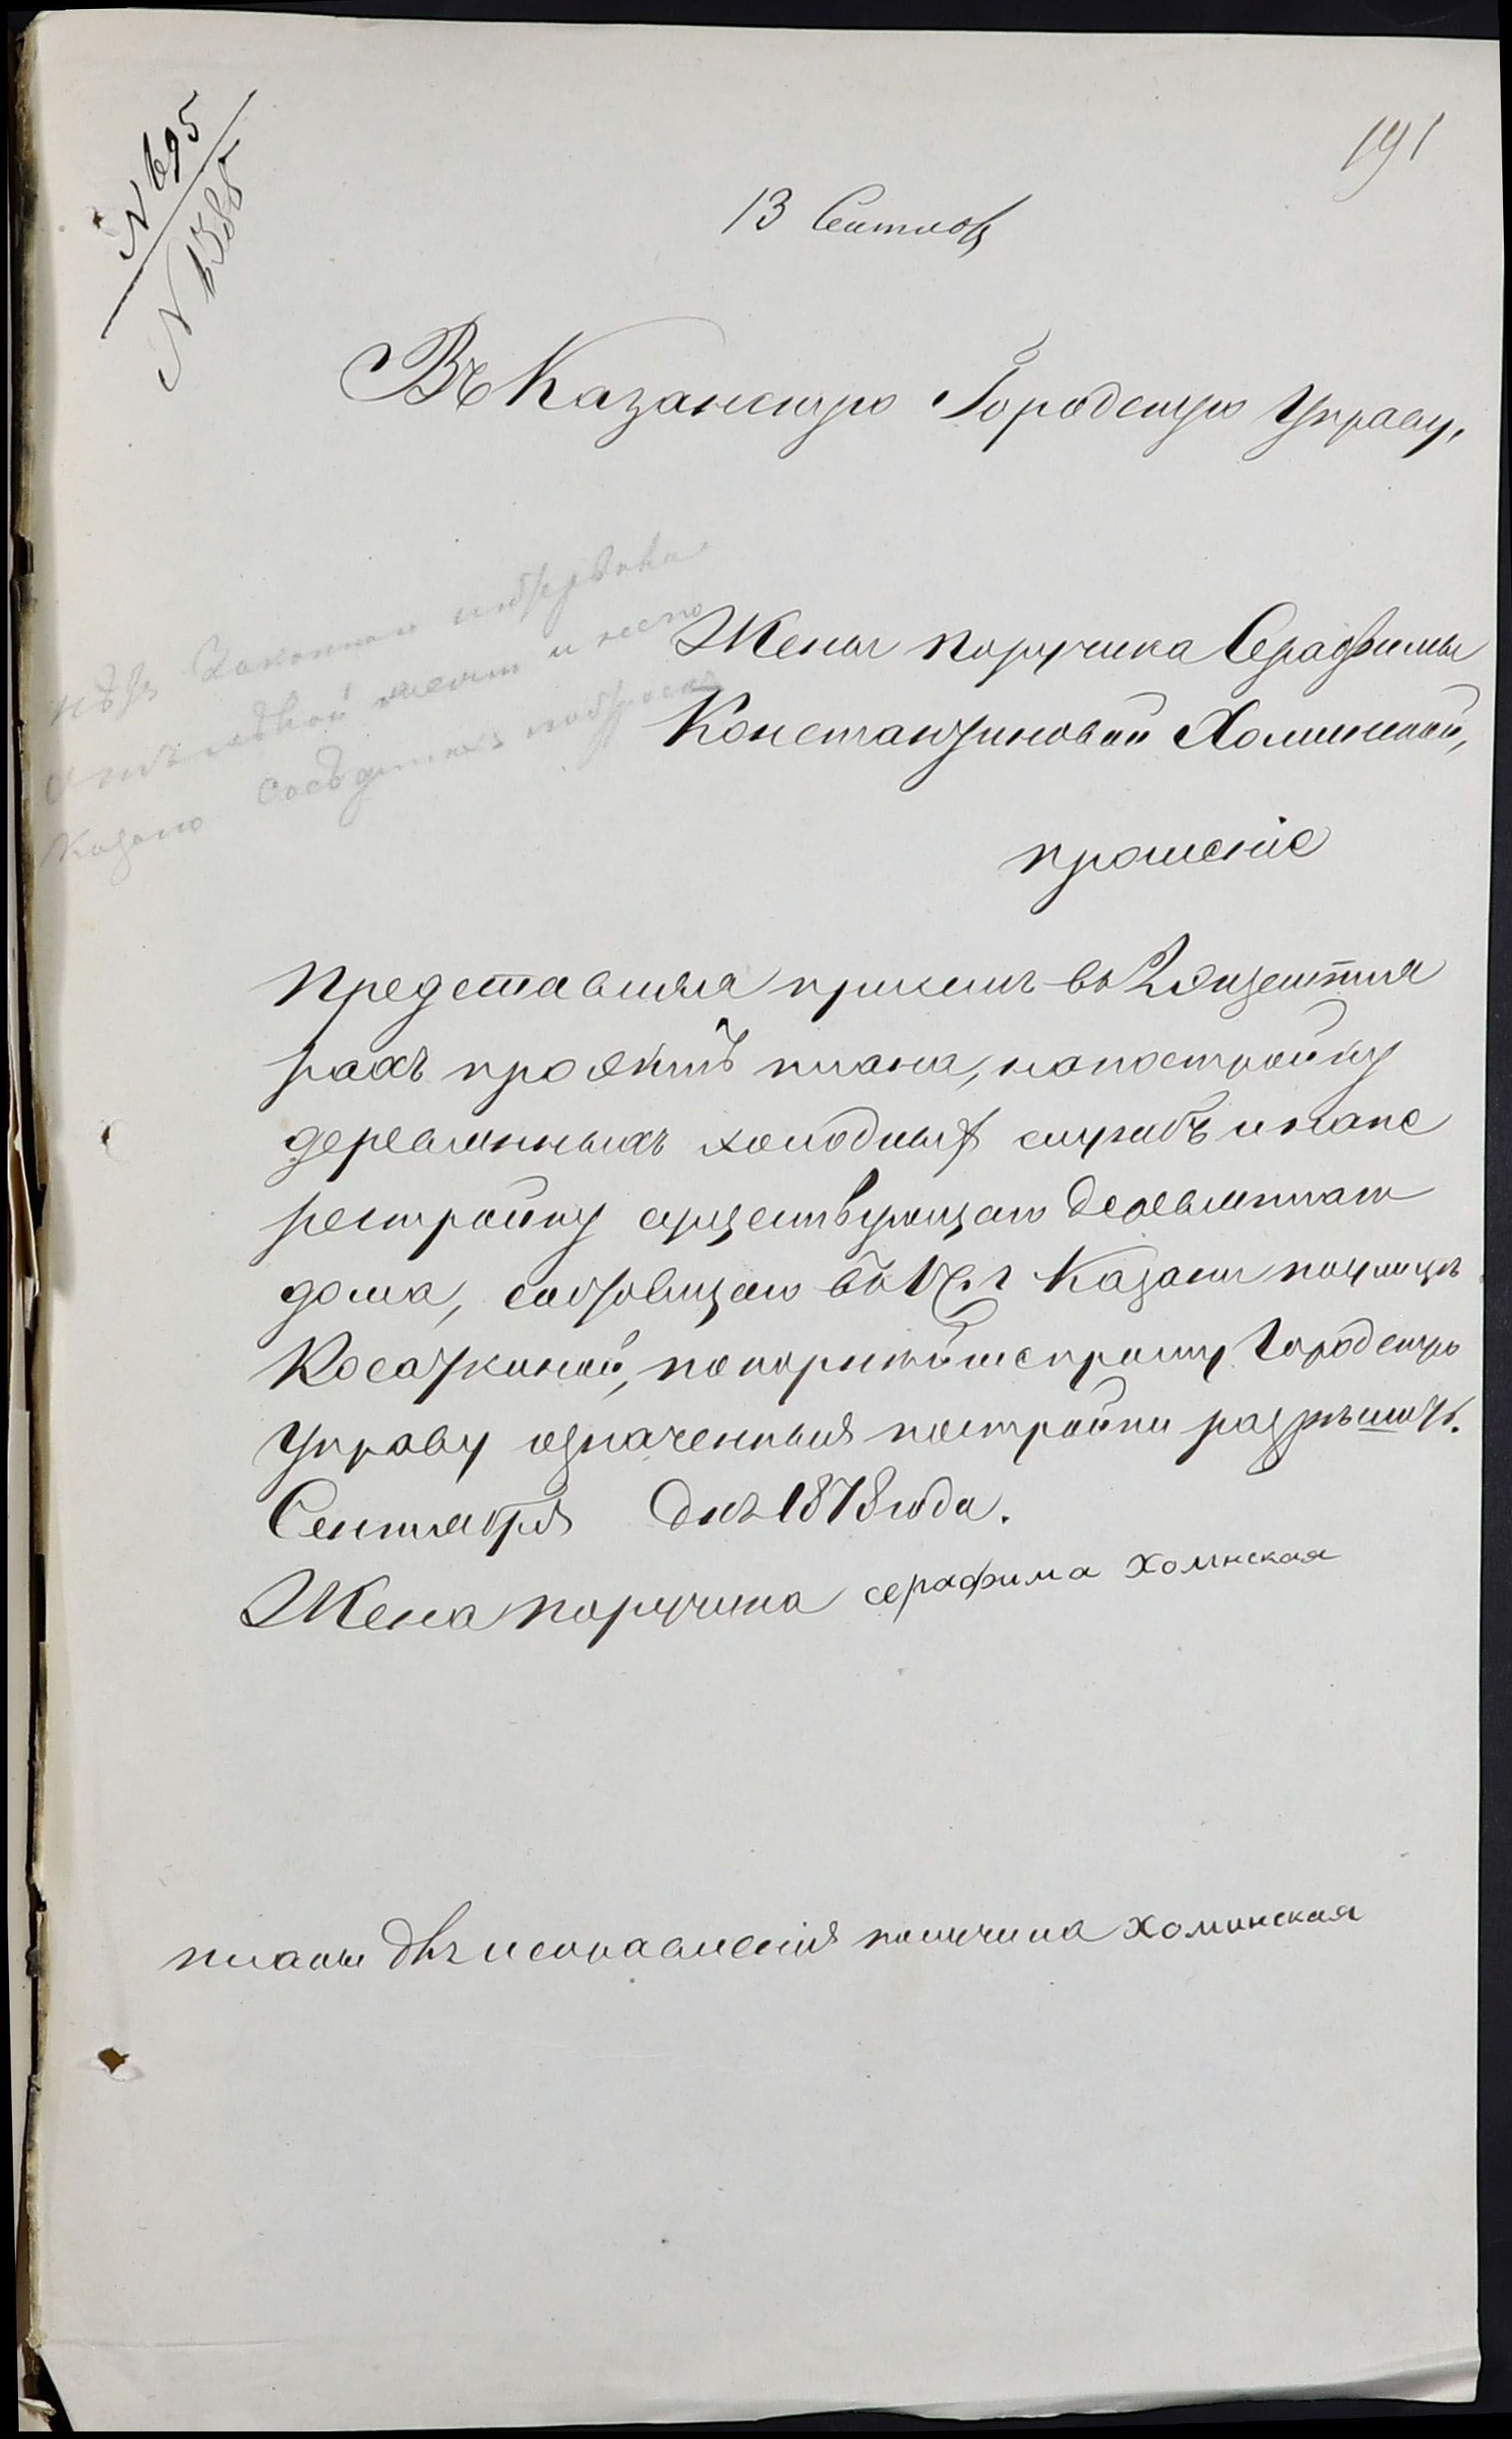 191
N 695
N 1388
13 Сентяб
Въ Казанскую Городскую Управу,
Жены поручика Серафимы
Константиновой Хоминской,
прошеніе
Представляя присемъ въ 2 экземпля
рахъ проэктъ плана, на постройку
деревянныхъ холодныхъ службъ и на пе
рестройку существующаго деревяннаго
дома, состоящаго въ 1й ч. г. Казани по улицѣ
Косаткиной, покорнѣйше прошу Городскую
Управу означенныя постройки разрѣшить.
Сентября дня 1878 года.
Жена поручика серафима хоминская
планы для исправленія получила хоминская